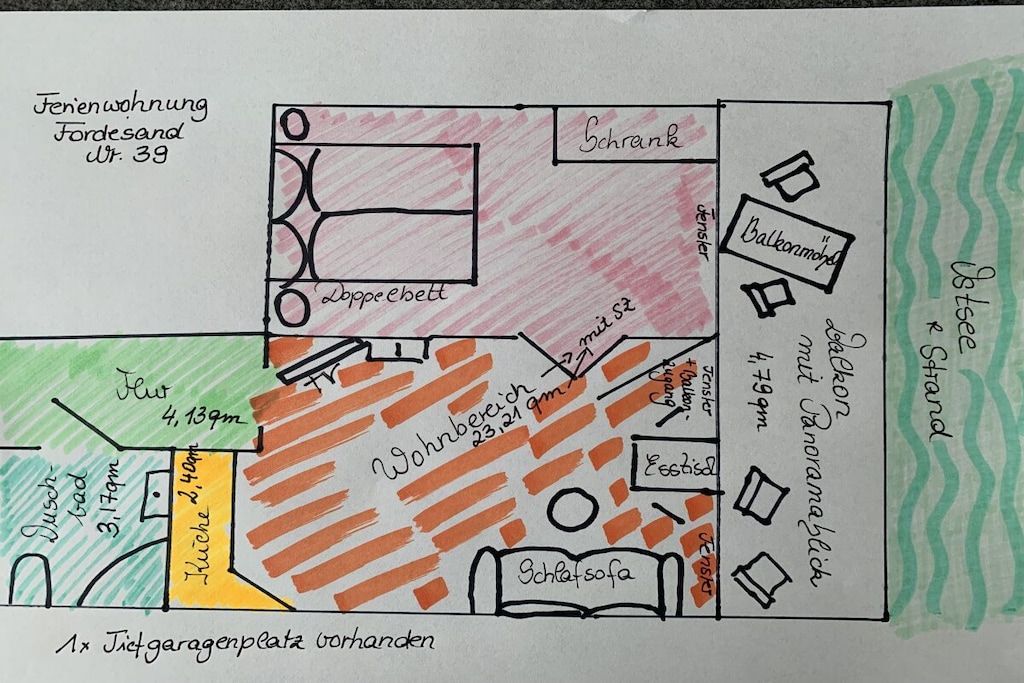 Ferienwohnung
Fördesand
Nr. 39
Schrank
Fenster
Doppelbett
Balkonmöbel
Ostsee
+ Strand
Balkon
mit Panoramablick
4,79qm
→ mit Sz
TV
Flur
4,13qm
Wohnbereich
23,21 qm
Fenster
+ Balkon-
zugang
Esstisch
Dusch-
bad
3,17qm
Küche 2,40qm
Schlafsofa
Fenster
1x Tiefgaragenplatz vorhanden